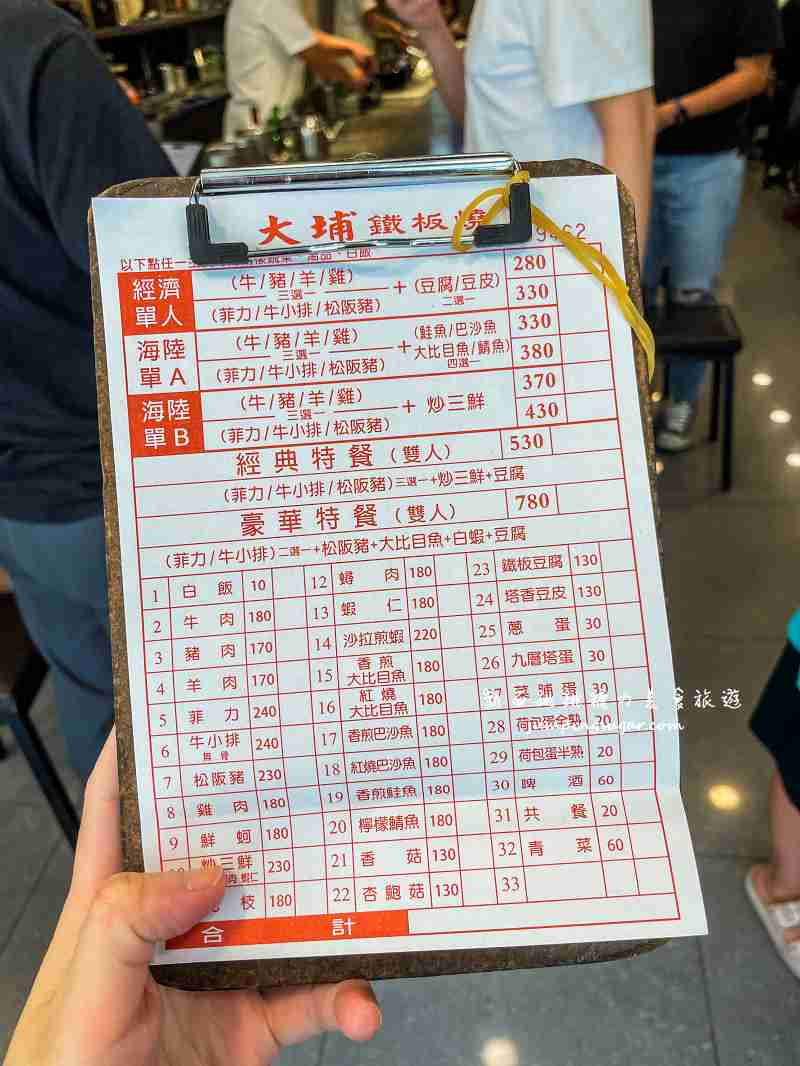 大埔鐵板燒
9462
以下點任一
經濟單人
(牛/豬/羊/雞)
三選一
(菲力/牛小排/松阪豬)
+ (豆腐/豆皮)
二選一
280
330
海陸單A
(牛/豬/羊/雞)
三選一
(菲力/牛小排/松阪豬)
+ (鮭魚/巴沙魚
大比目魚/鯖魚)
四選一
330
380
海陸單B
(牛/豬/羊/雞)
三選一
(菲力/牛小排/松阪豬)
+ 炒三鮮
370
430
經典特餐(雙人) 530
(菲力/牛小排/松阪豬)三選一+炒三鮮+豆腐
豪華特餐(雙人) 780
(菲力/牛小排)二選一+松阪豬+大比目魚+白蝦+豆腐
1 白飯 10
2 牛肉 180
3 豬肉 170
4 羊肉 170
5 菲力 240
6 牛小排 無骨 240
7 松阪豬 230
8 雞肉 180
9 鮮蚵 180
炒三鮮 230
肉.蝦仁
枝 180
12 蟳肉 180
13 蝦仁 180
14 沙拉煎蝦 220
15 香煎大比目魚 180
16 紅燒大比目魚 180
17 香煎巴沙魚 180
18 紅燒巴沙魚 180
19 香煎鮭魚 180
20 檸檬鯖魚 180
21 香菇 130
22 杏鮑菇 130
23 鐵板豆腐 130
24 塔香豆皮 130
25 蔥蛋 30
26 九層塔蛋 30
27 菜脯蛋 30
28 荷包蛋全熟 20
29 荷包蛋半熟 20
30 啤酒 60
31 共餐 20
32 青菜 60
33
合計